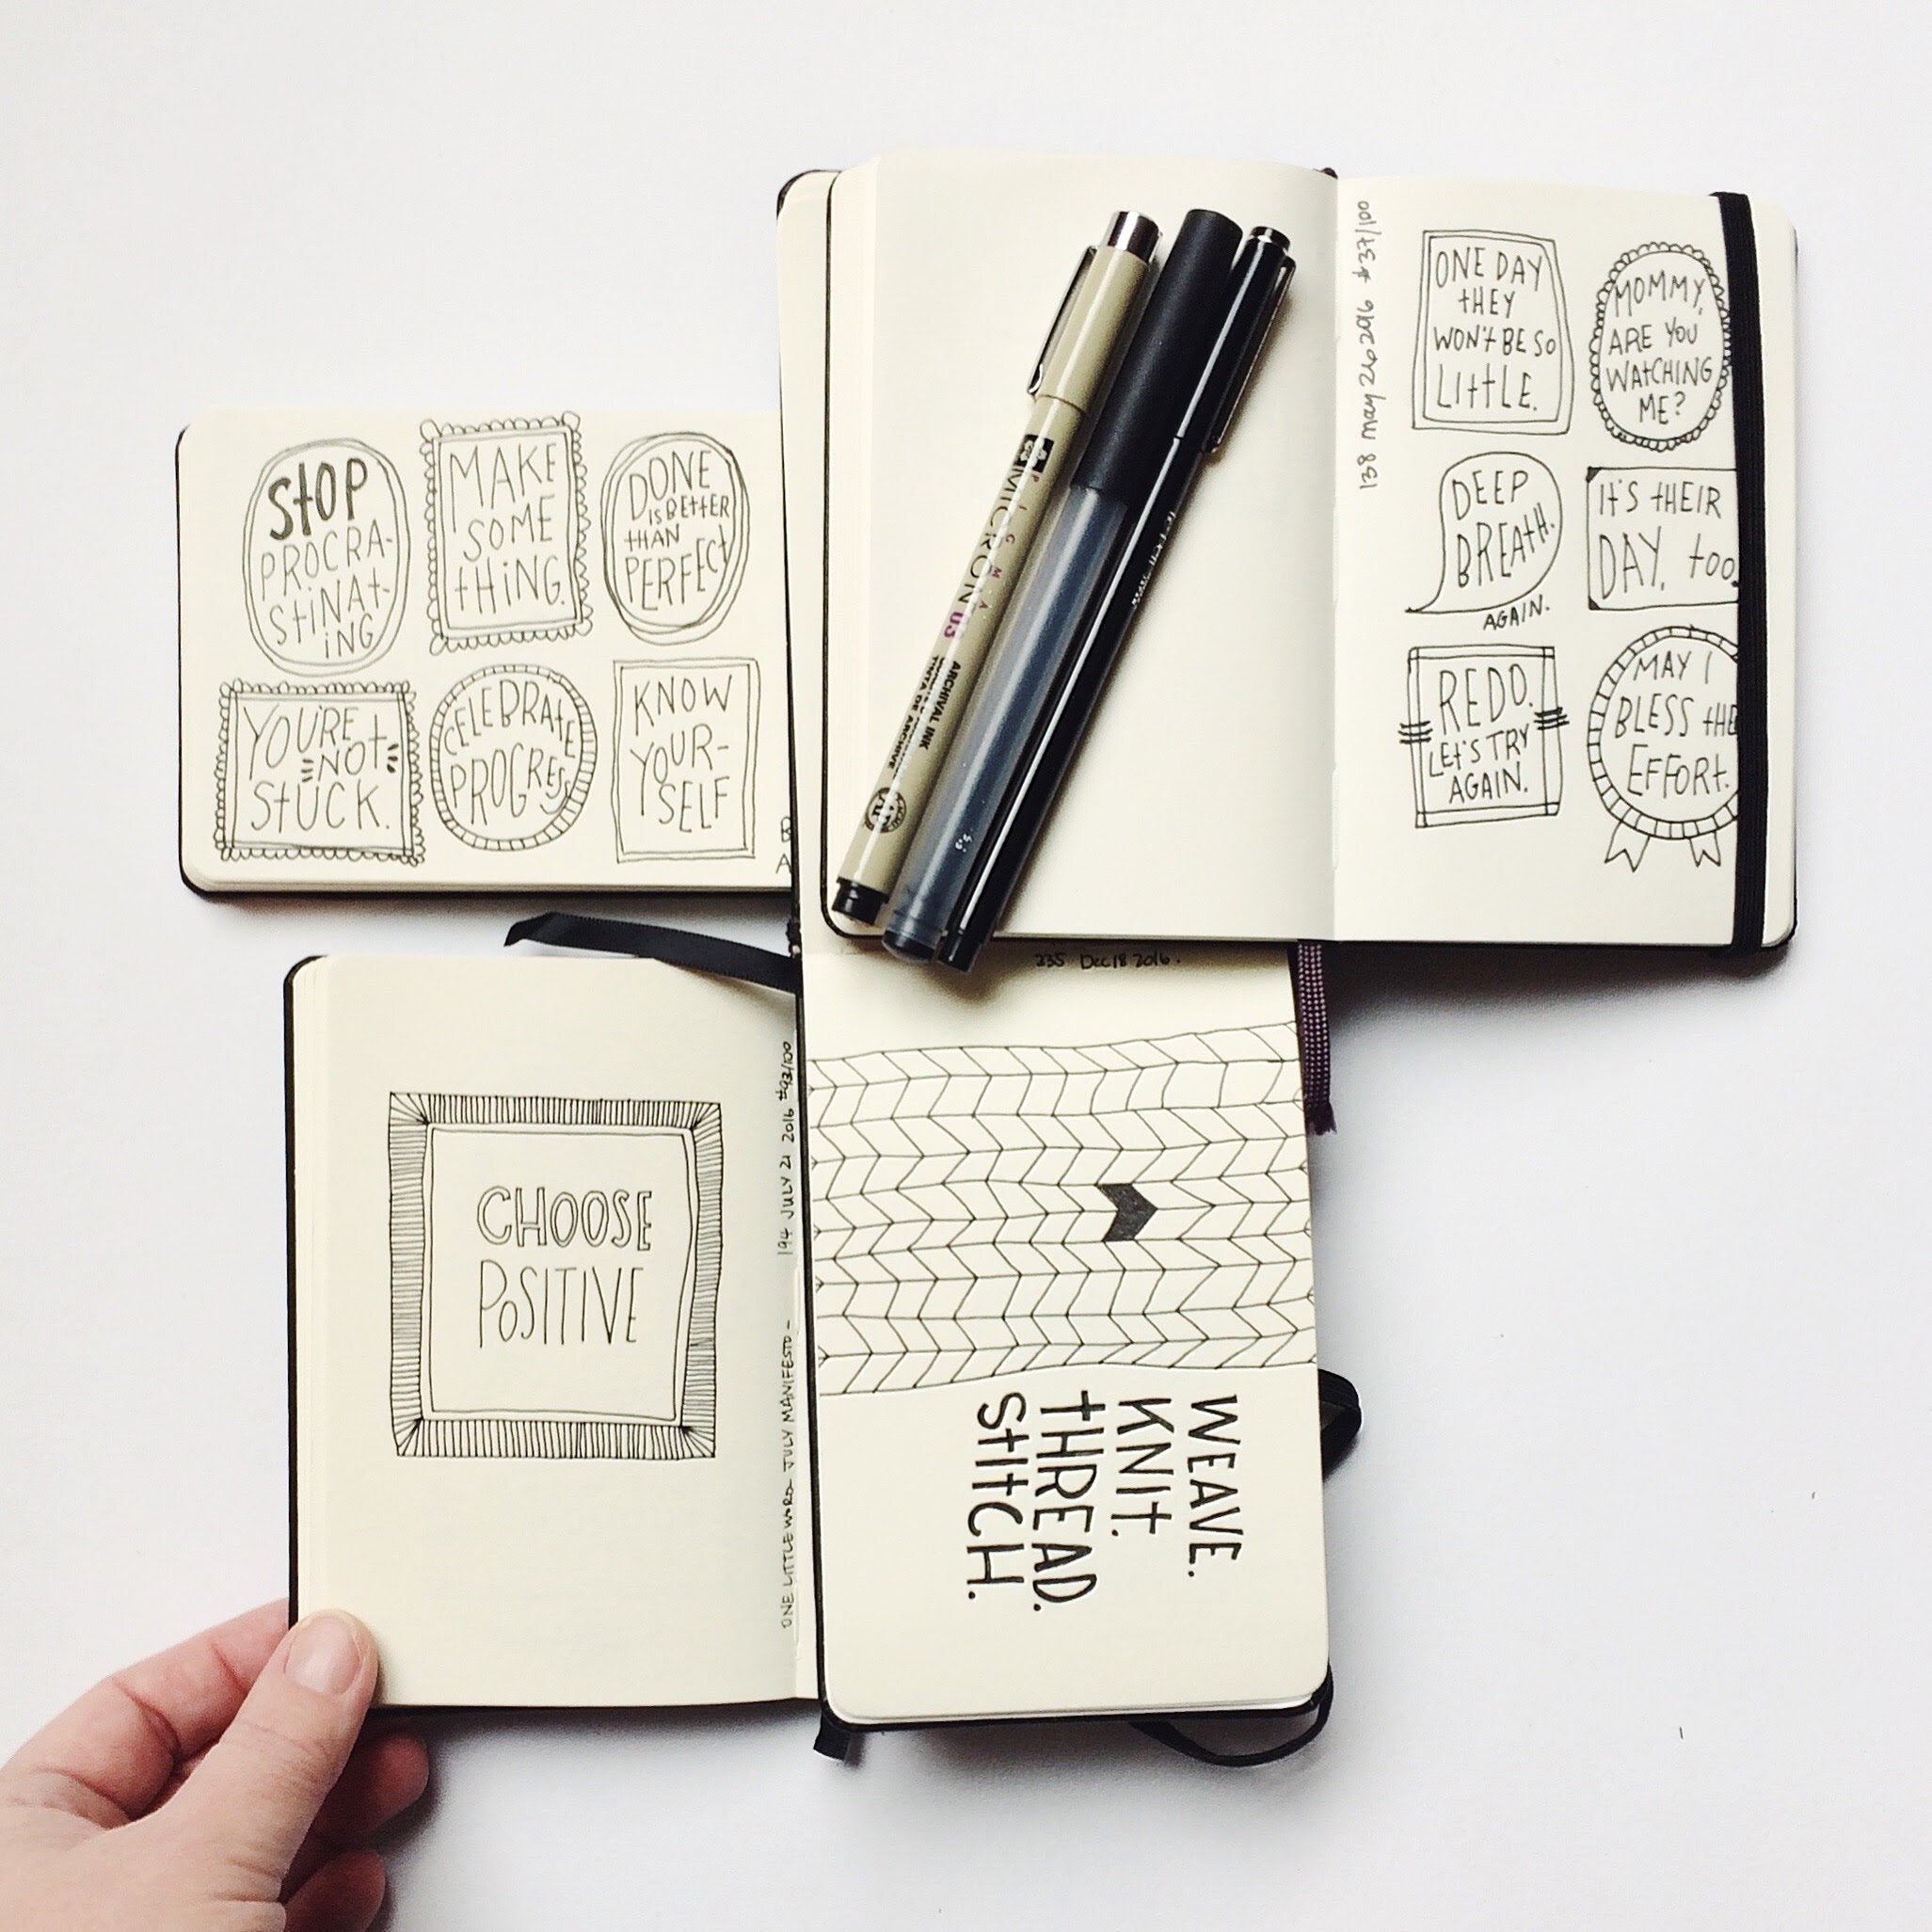 STOP
PROCRA-
STINAT-
ING
MAKE
SOME
THING.
DONE
IS BETTER
THAN
PERFECT
YOU'RE
"NOT"
STUCK.
CELEBRATE
PROGRESS
KNOW
YOUR-
SELF
MICRON 05
ARCHIVAL INK
138 May 26 2016 #37/100
ONE DAY
THEY
WON'T BE SO
LITTLE.
MOMMY,
ARE YOU
WATCHING
ME?
DEEP
BREATH.
AGAIN.
IT'S THEIR
DAY, TOO.
REDO.
LET'S TRY
AGAIN.
MAY I
BLESS THE
EFFORT.
CHOOSE
POSITIVE
ONE LITTLE WORD - JULY MANIFESTO - 194 JULY 21 2016 #93/100
235 Dec 18 2016.
WEAVE.
KNIT.
THREAD.
STITCH.